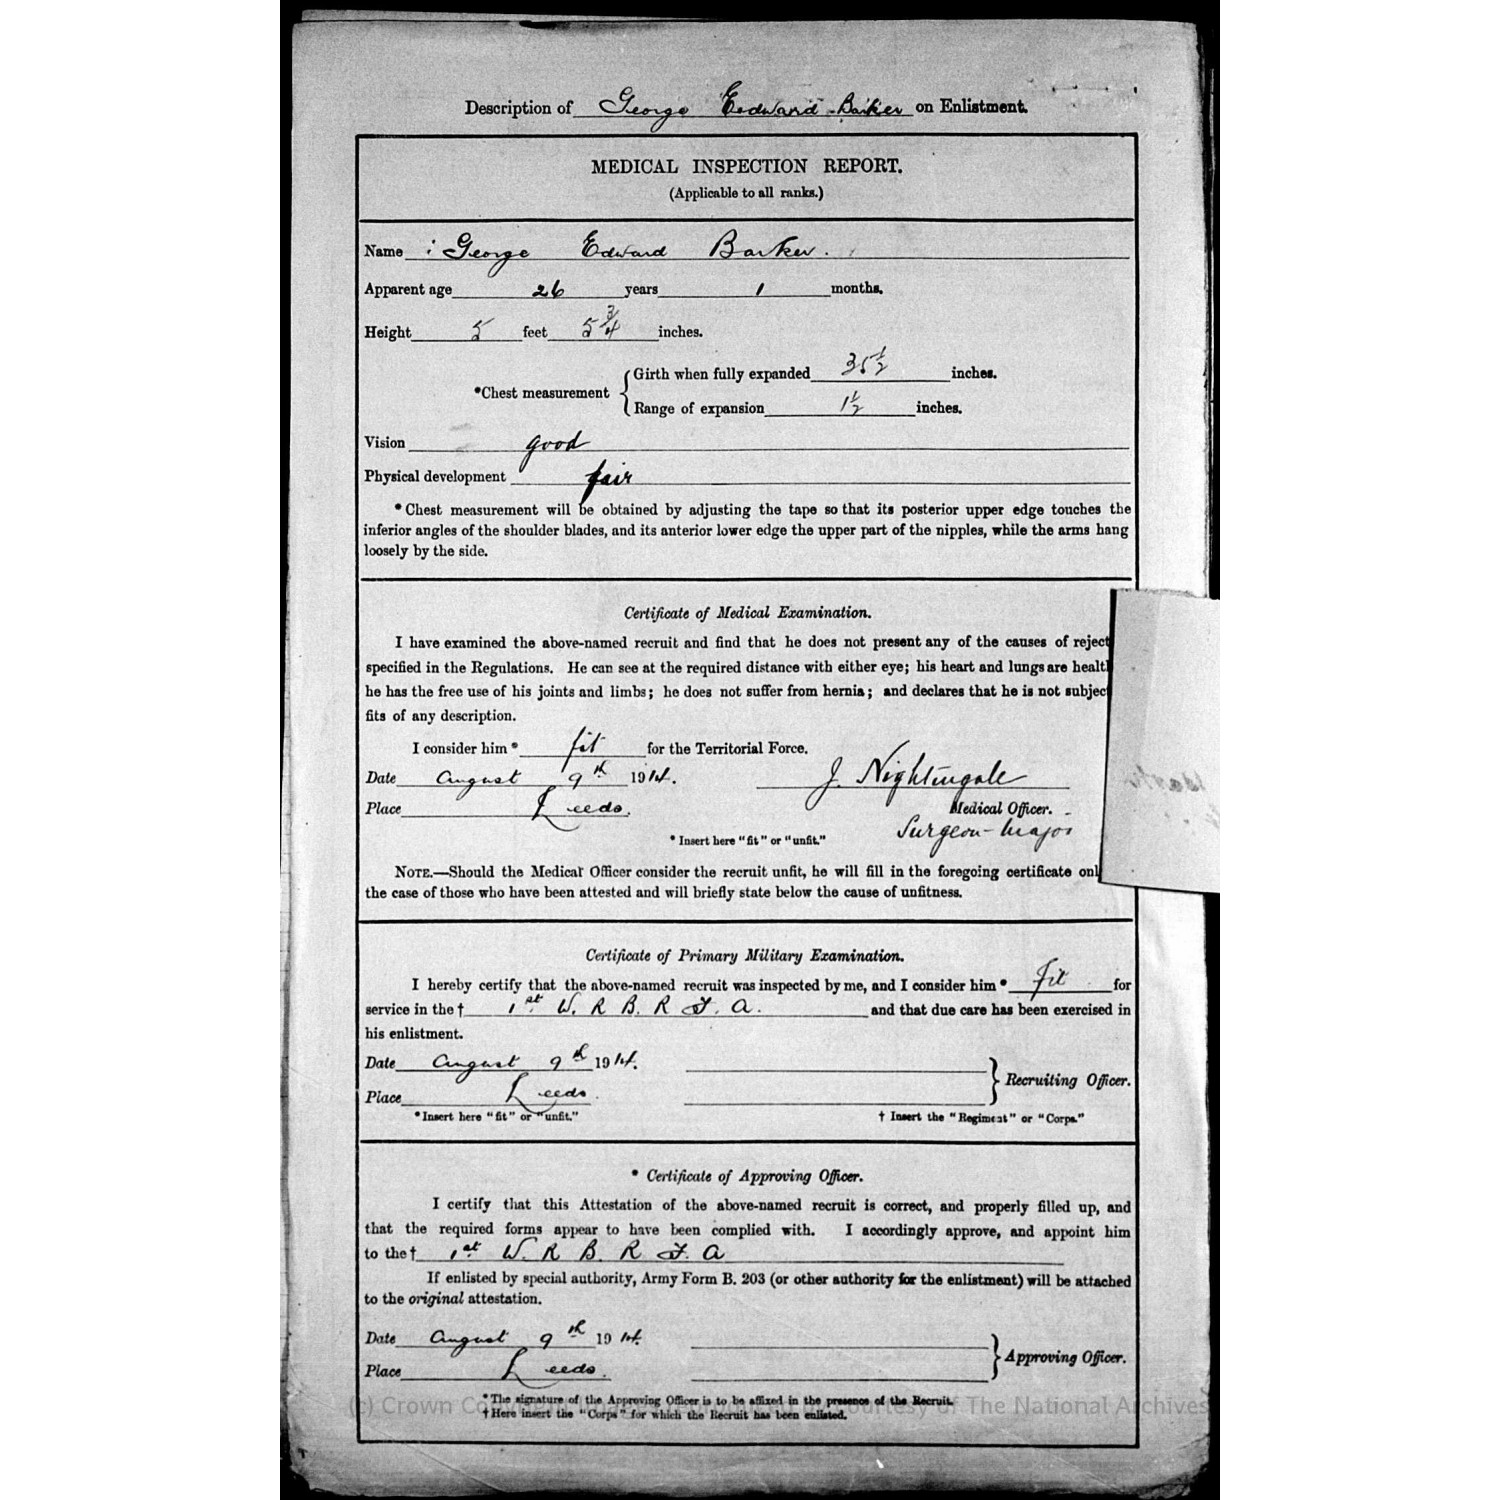 Description of George Eedward Barker on Enlistment.
MEDICAL INSPECTION REPORT.
(Applicable to all ranks.)
Name George Edward Barker.
Apparent age 26 years 1 months.
Height 5 feet 5 3/4 inches.
*Chest measurement
Girth when fully expanded 35 1/2 inches.
Range of expansion 1 1/2 inches.
Vision good
Physical development fair
* Chest measurement will be obtained by adjusting the tape so that its posterior upper edge touches the
inferior angles of the shoulder blades, and its anterior lower edge the upper part of the nipples, while the arms hang
loosely by the side.
Certificate of Medical Examination.
I have examined the above-named recruit and find that he does not present any of the causes of reject
specified in the Regulations. He can see at the required distance with either eye; his heart and lungs are healt
he has the free use of his joints and limbs; he does not suffer from hernia; and declares that he is not subject
fits of any description.
I consider him* fit for the Territorial Force.
Date August 9th 1914. J. Nightingale
Place Leeds. Medical Officer.
Surgeon-Major
* Insert here "fit" or "unfit."
NOTE.—Should the Medical Officer consider the recruit unfit, he will fill in the foregoing certificate onl
the case of those who have been attested and will briefly state below the cause of unfitness.
Certificate of Primary Military Examination.
I hereby certify that the above-named recruit was inspected by me, and I consider him* fit for
service in the † 1st W. R. B. R. F. A. and that due care has been exercised in
his enlistment.
Date August 9th 1914.
Place Leeds. Recruiting Officer.
* Insert here "fit" or "unfit." † Insert the "Regiment" or "Corps."
* Certificate of Approving Officer.
I certify that this Attestation of the above-named recruit is correct, and properly filled up, and
that the required forms appear to have been complied with. I accordingly approve, and appoint him
to the † 1st W. R. B. R. F. A
If enlisted by special authority, Army Form B. 203 (or other authority for the enlistment) will be attached
to the original attestation.
Date August 9th 1914.
Place Leeds. Approving Officer.
* The signature of the Approving Officer is to be affixed in the presence of the Recruit.
† Here insert the "Corps" for which the Recruit has been enlisted.
(c) Crown Co courtesy of The National Archives